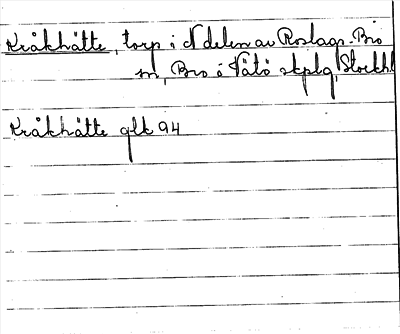 Kråkhätte, torp i N delen av Roslags-Bro
sn, Bro o Vätö skplg, Stockh.l
Kråkhätte glk 94